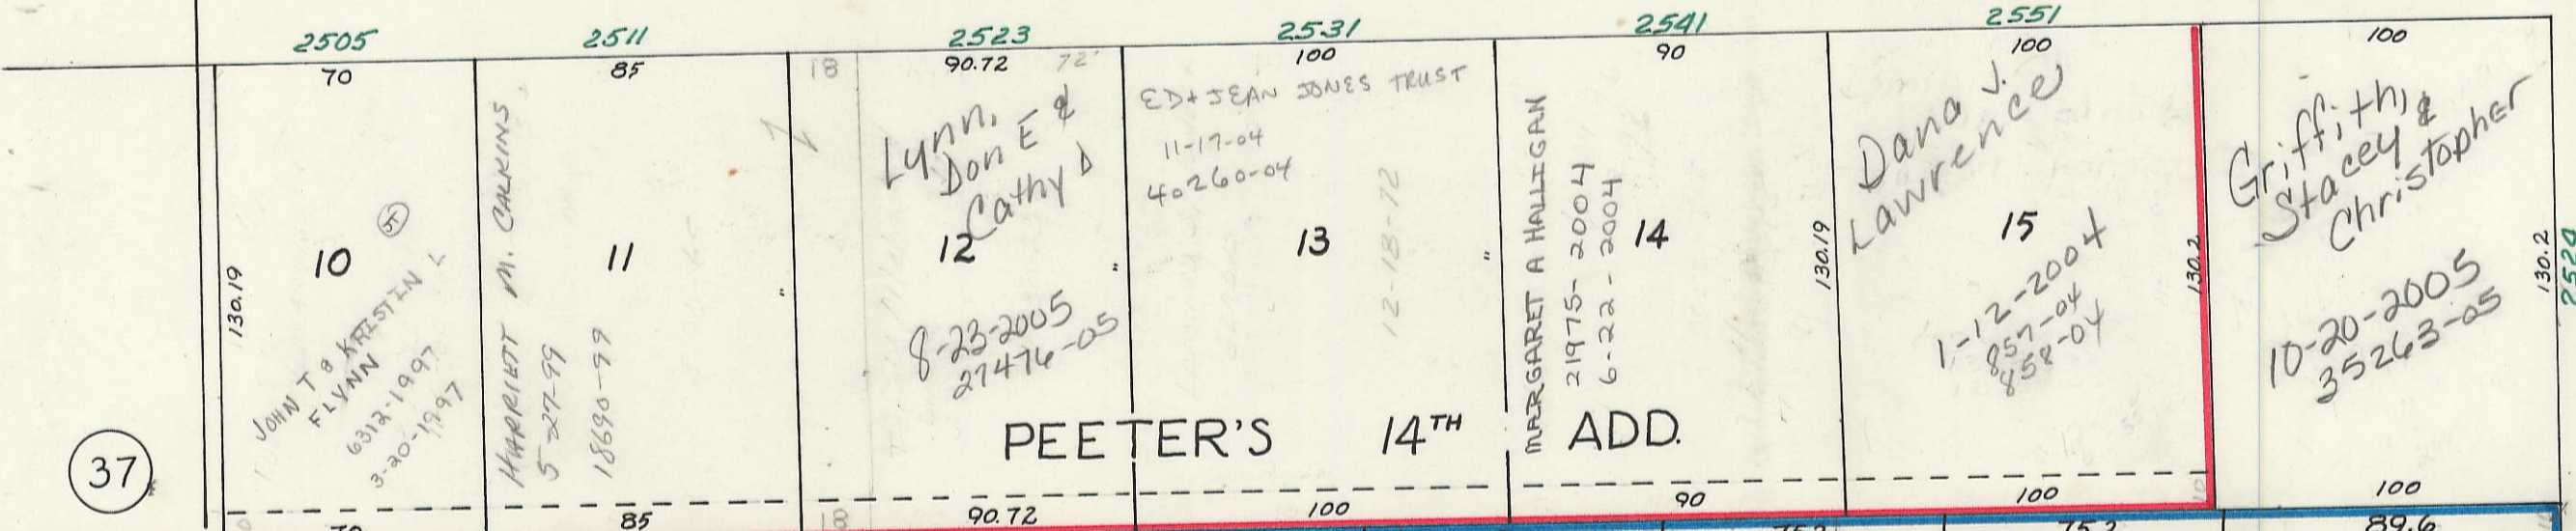 2505
2511
2523
2531
2541
2551
70
85
18
90.72
72'
100
90
100
100
JOHN T & KRISTIN L
FLYNN
6312-1997
3-20-1997
10
130.19
HARRIETT M. CALKINS
5-27-99
18690-99
11
"
Lynn,
Don E &
Cathy D
12
8-23-2005
27476-05
"
ED & JEAN JONES TRUST
11-17-04
40260-04
13
12-18-72
"
MARGARET A HALLIGAN
21975-2004
6-22-2004
14
130.19
Dana J.
Lawrence
15
1-12-2004
857-04
858-04
130.2
Griffith,
Stacey &
Christopher
10-20-2005
35263-05
130.2
2520
PEETER'S 14TH ADD.
37
70
85
18
90.72
100
90
100
10
100
75.2
75.2
89.6